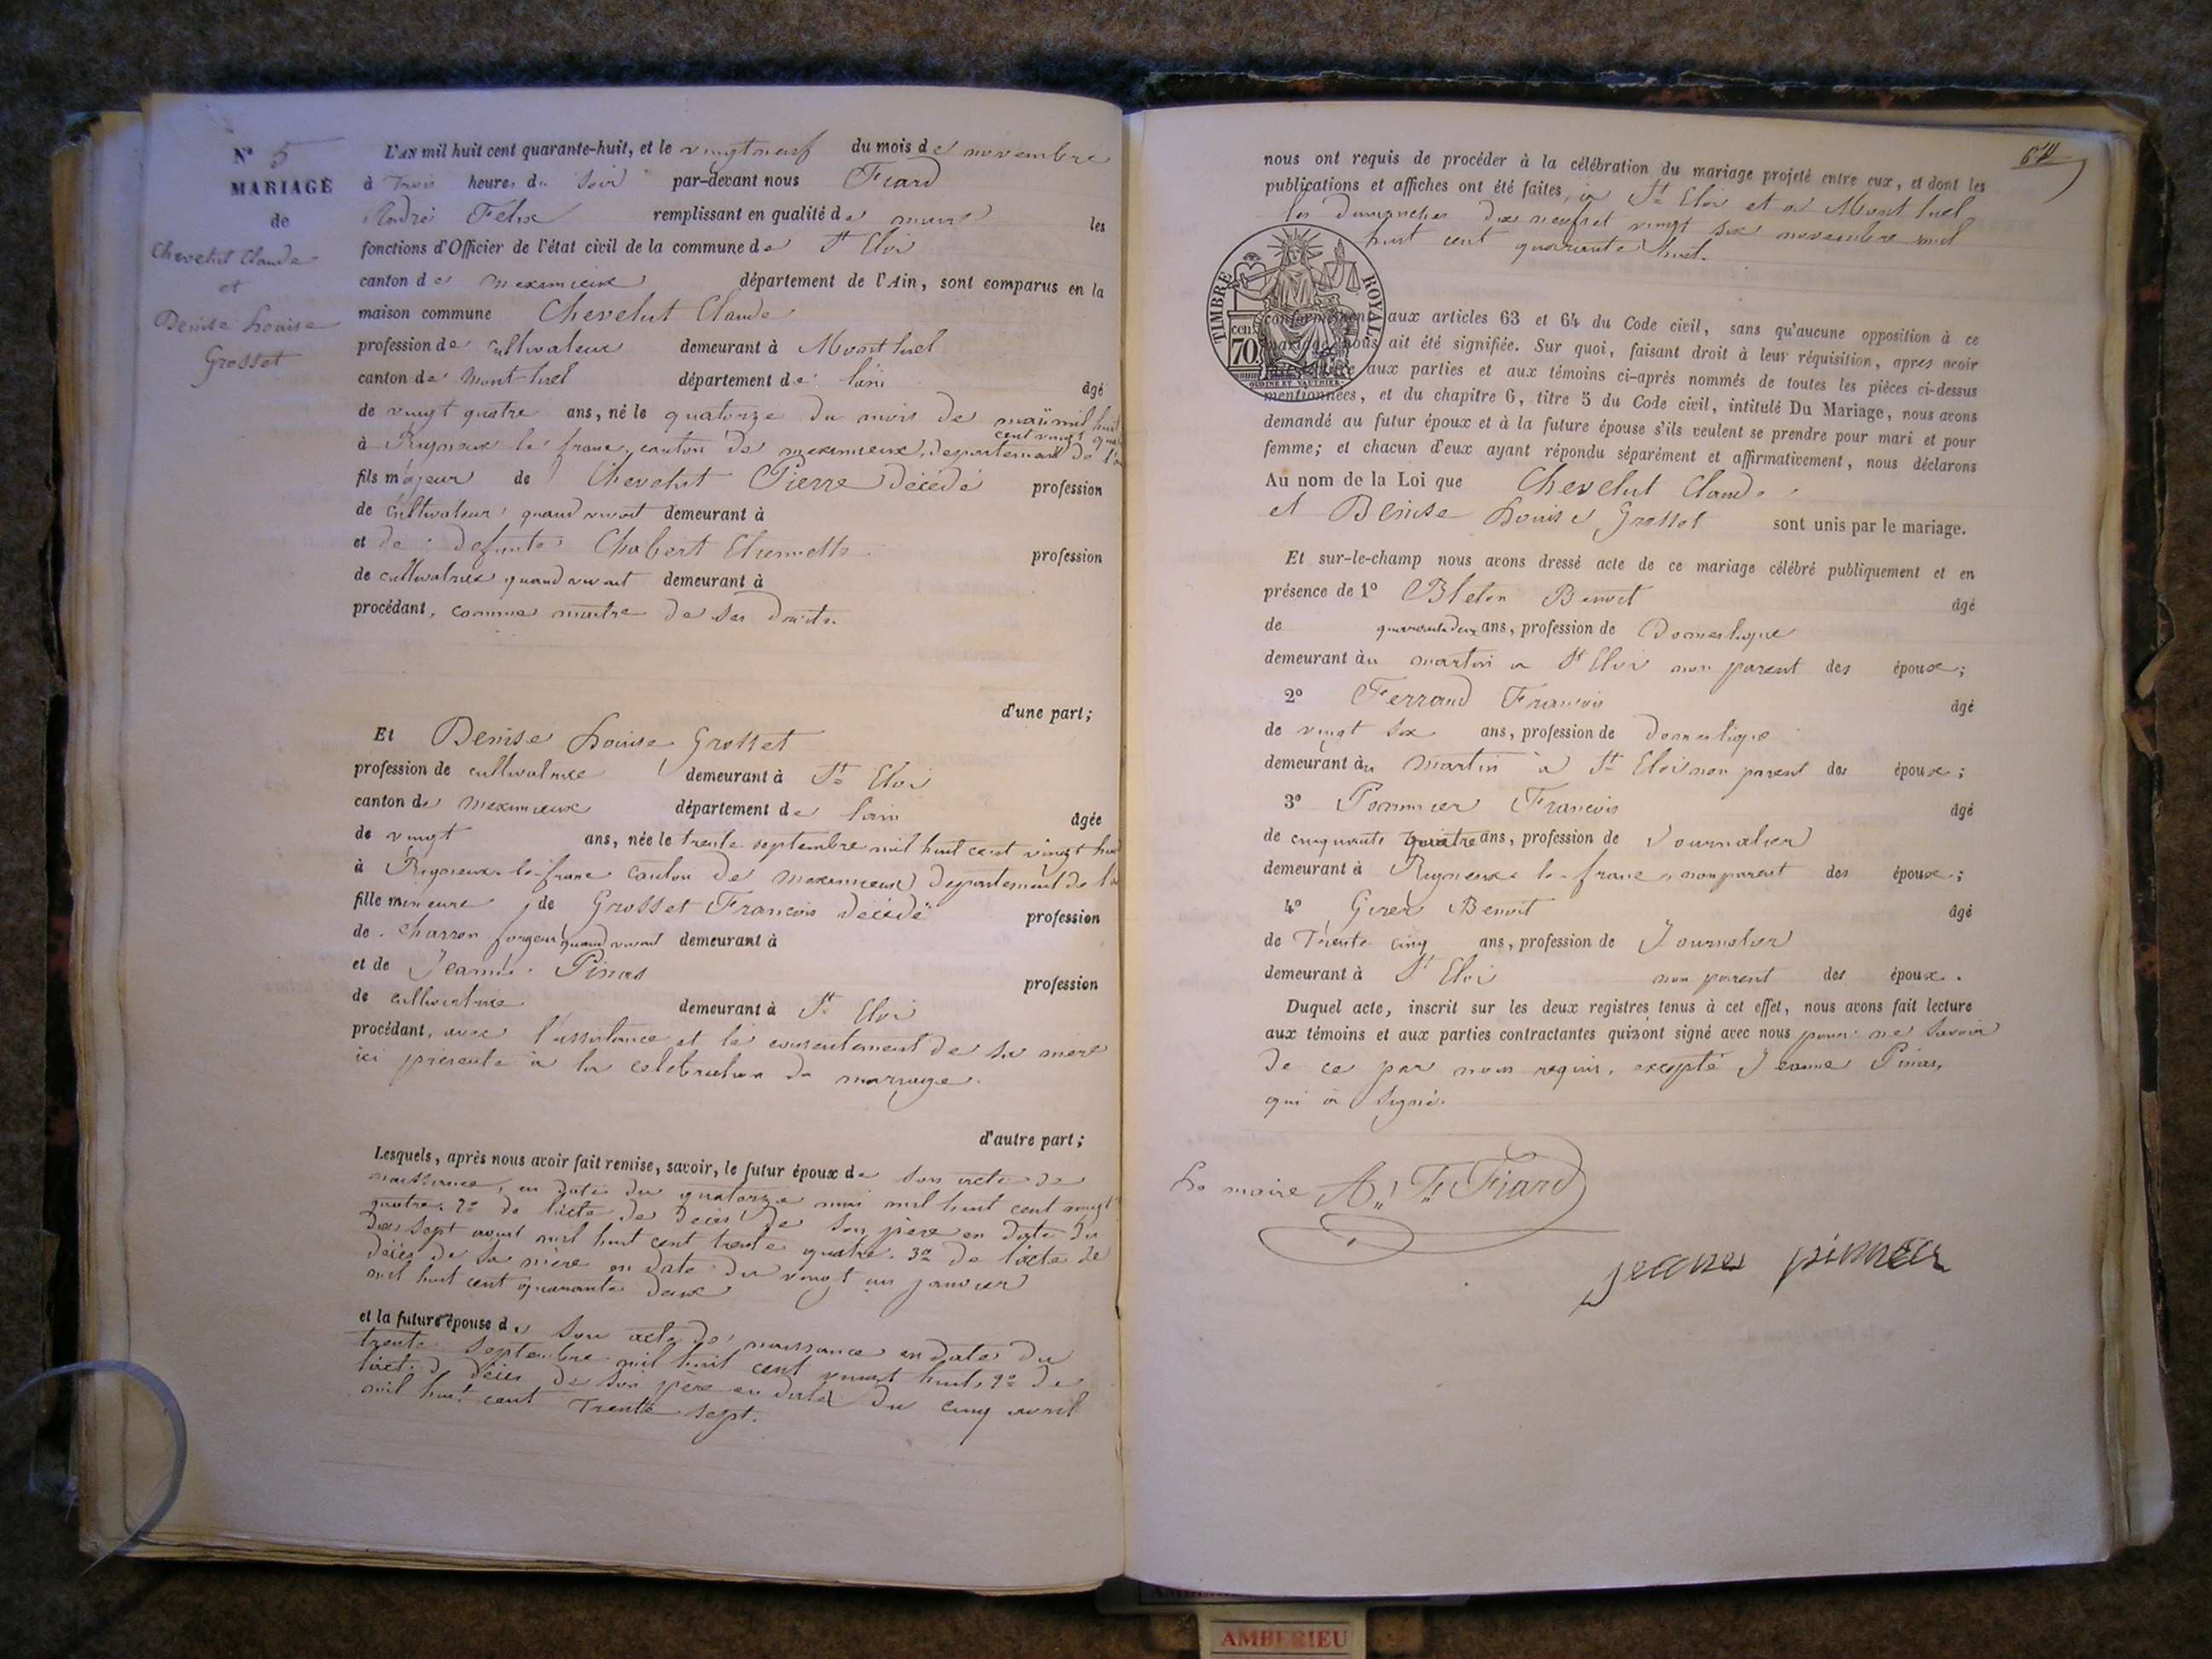 N° 5
MARIAGE
de
Chevelut Claude
et
Denise Louise
Grosset
L'AN mil huit cent quarante-huit, et le vingt neuf du mois de novembre
à Trois heures du Soir par-devant nous Fiard
André Felix remplissant en qualité de maire les
fonctions d'Officier de l'état civil de la commune de St Eloi
canton de meximieux département de l'Ain, sont comparus en la
maison commune Chevelut Claude
profession de cultivateur demeurant à Mont luel
canton de Mont-luel département de l'ain âgé
de vingt quatre ans, né le quatorze du mois de mai mil huit
cent vingt quatre
à Rigneux le franc, canton de meximieux, departement de l'ain
fils majeur de Chevelut Pierre décédé profession
de cultivateur quand vivait demeurant à
et de defunte Chabert Etiennette profession
de cultivatrice quand vivait demeurant à
procédant, comme maitre de ses droits.
d'une part;
Et Denise Louise Grosset
profession de cultivatrice demeurant à St Eloi
canton de meximieux département de l'ain âgée
de vingt ans, née le trente septembre mil huit cent vingt huit
à Rigneux-le-franc canton de meximieux departement de l'ain
fille mineure de Grosset Francois décédé profession
de charron forgeur quand vivait demeurant à
et de Jeanne Pinas profession
de cultivatrice demeurant à St Eloi
procédant, avec l'assistance et le consentement de sa mere
ici présente à la celebration du mariage.
d'autre part;
Lesquels, après nous avoir fait remise, savoir, le futur époux de son acte de
naissance, en date du quatorze mai mil huit cent vingt
quatre. 2° de l'acte de décès de son père en date du
dix sept aout mil huit cent trente quatre. 3° de l'acte de
décès de sa mère en date du vingt un janvier
mil huit cent quarante deux
et la future épouse de son acte de naissance en date du
trente septembre mil huit cent vingt huit, 2° de
l'acte de décès de son père en date du cinq avril
mil huit cent Trente sept.
62
nous ont requis de procéder à la célébration du mariage projeté entre eux, et dont les
publications et affiches ont été faites, à St Eloi et à Mont luel
les dimanches dix neuf et vingt six novembre mil
huit cent quarante huit.
TIMBRE ROYAL
cen. 70
OUDINÉ ET VAUTHIER
conformément aux articles 63 et 64 du Code civil, sans qu'aucune opposition à ce
mariage nous ait été signifiée. Sur quoi, faisant droit à leur réquisition, apres avoir
fait lecture aux parties et aux témoins ci-après nommés de toutes les pièces ci-dessus
mentionnées, et du chapitre 6, titre 5 du Code civil, intitulé Du Mariage, nous avons
demandé au futur époux et à la future épouse s'ils veulent se prendre pour mari et pour
femme; et chacun d'eux ayant répondu séparément et affirmativement, nous déclarons
Au nom de la Loi que Chevelut Claude
et Denise Louise Grosset sont unis par le mariage.
Et sur-le-champ nous avons dressé acte de ce mariage célébré publiquement et en
présence de 1° Bleton Benoit âgé
de quarante deux ans, profession de Domestique
demeurant au martin à St Eloi non parent des époux;
2° Ferrand Francois âgé
de vingt six ans, profession de domestique
demeurant au martin à St Eloi non parent des époux;
3° Pommier Francois âgé
de cinquante quatre ans, profession de Journalier
demeurant à Rigneux-le-franc, non parent des époux;
4° Girer Benoit âgé
de Trente cinq ans, profession de Journalier
demeurant à St Eloi non parent des époux.
Duquel acte, inscrit sur les deux registres tenus à cet effet, nous avons fait lecture
aux témoins et aux parties contractantes qui n'ont signé avec nous pour ne savoir
de ce par nous requis, excepté Jeanne Pinas,
qui a signé.
Le maire A. F. Fiard
AMBERIEU